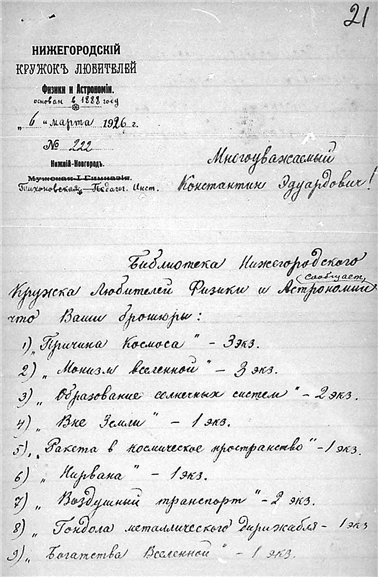 21
НИЖЕГОРОДСКІЙ
КРУЖОКЪ ЛЮБИТЕЛЕЙ
Физики и Астрономіи.
основан в 1888 году
„6 " марта 1926 г.
№ 222
Нижній-Новгородъ.
Мужская I Гимназія.
Тихоновская, Педагог. Инст.
Многоуважаемый
Константин Эдуардович!
Библиотека Нижегородского
сообщает,
Кружка Любителей Физики и Астрономии
что Ваши брошюры:
1) „Причина Космоса" – 3 экз.
2) „Монизм вселенной" – 3 экз.
3) „Образование солнечных систем" – 2 экз.
4) „Вне Земли" – 1 экз.
5) „Ракета в космическое пространство" – 1 экз.
6) „Нирвана" – 1 экз.
7) „Воздушный транспорт" – 2 экз.
8) „Гондола металлического дирижабля – 1 экз
9) „Богатства Вселенной" – 1 экз.